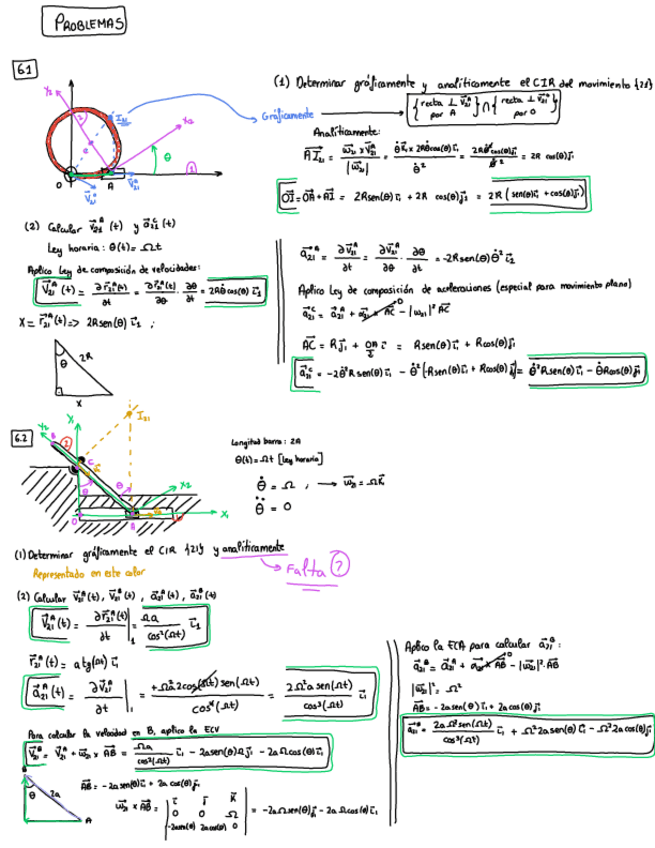 PROBLEMAS
6.1
(1) Determinar gráficamente y analíticamente el CIR del movimiento {21}
Gráficamente → {recta ⊥ V⃗₂₁ᴬ por A} ∩ {recta ⊥ V⃗₂₁ᴼ por O}
Analíticamente:
AI⃗₂₁ = (ω⃗₂₁ × V⃗₂₁ᴬ) / |ω⃗₂₁| = (θ̇ k⃗₁ × 2Rθ̇cos(θ) i⃗₁) / θ̇² = (2Rθ̇²cos(θ) j⃗₁) / θ̇² = 2R cos(θ) j⃗₁
OI⃗ = OA⃗ + AI⃗ = 2Rsen(θ) i⃗₁ + 2R cos(θ) j⃗₁ = 2R (sen(θ) i⃗₁ + cos(θ) j⃗₁)
Y₁
Y₂
I₂₁
X₂
2
C
θ
1
O
A
V⃗₂₁ᴼ
V⃗₂₁ᴬ
(2) Calcular V⃗₂₁ᴬ (t) y a⃗₂₁ᶜ (t)
Ley horaria: θ(t) = Ωt
Aplico Ley de composición de velocidades:
V⃗₂₁ᴬ (t) = ∂r⃗₂₁ᴬ(t) / ∂t = ∂r⃗₂₁ᴬ(t) / ∂θ · ∂θ / ∂t = 2Rθ̇cos(θ) i⃗₁
X = r⃗₂₁ᴬ(t) => 2Rsen(θ) i⃗₁ ;
θ
2R
X
a⃗₂₁ᴬ = ∂V⃗₂₁ᴬ / ∂t = ∂V⃗₂₁ᴬ / ∂θ · ∂θ / ∂t = -2Rsen(θ) θ̇² i⃗₂
Aplico Ley de composición de aceleraciones (especial para movimiento plano)
a⃗₂₁ᶜ = a⃗₂₁ᴬ + α⃗₂₁ × AC⃗ 0 - |ω₂₁|² AC⃗
AC⃗ = R j⃗₁ + OA/2 i⃗ = Rsen(θ) i⃗₁ + Rcos(θ) j⃗₁
a⃗₂₁ᶜ = -2θ̇²Rsen(θ) i⃗₁ - θ̇² (-Rsen(θ) i⃗₁ + Rcos(θ) j⃗) = θ̇²Rsen(θ) i⃗₁ - θ̇Rcos(θ) j⃗₁
6.2
B
2
Y₂
X₁
I₂₁
C
θ
θ
X₂
O
A
X₁
Longitud barra: 2A
θ(t) = Ωt [Ley horaria]
θ̇ = Ω ; → ω⃗₂₁ = Ωk⃗
θ̈ = 0
(1) Determinar gráficamente el CIR {21} y analíticamente
→ Falta ?
Representado en este color
(2) Calcular V⃗₂₁ᴬ(t), V⃗₂₁ᴮ(t), a⃗₂₁ᴬ(t), a⃗₂₁ᴮ(t)
V⃗₂₁ᴬ(t) = ∂r⃗₂₁ᴬ(t) / ∂t |₁ = Ωa / cos²(Ωt) i⃗₁
r⃗₂₁ᴬ(t) = a tg(Ωt) i⃗₁
a⃗₂₁ᴬ(t) = ∂V⃗₂₁ᴬ / ∂t |₁ = +Ω²a2cos(Ωt) sen(Ωt) / cos⁴(Ωt) = 2Ω²a sen(Ωt) / cos³(Ωt) i⃗₁
Para calcular la velocidad en B, aplico la ECV
V⃗₂₁ᴮ = V⃗₂₁ᴬ + ω⃗₂₁ × AB⃗ = Ωa / cos²(Ωt) i⃗₁ - 2asen(θ)Ω j⃗₁ - 2aΩcos(θ) i⃗₁
B
θ
2a
A
AB⃗ = -2asen(θ) i⃗ + 2a cos(θ) j⃗₁
ω⃗₂₁ × AB⃗ = | i⃗ j⃗ k⃗ ; 0 0 Ω ; -2asen(θ) 2acos(θ) 0 | = -2aΩsen(θ) j⃗₁ - 2aΩcos(θ) i⃗₁
Aplico la ECA para calcular a⃗₂₁ᴮ :
a⃗₂₁ᴮ = a⃗₂₁ᴬ + α⃗₂₁ × AB⃗ 0 - |ω⃗₂₁|² · AB⃗
|ω⃗₂₁|² = Ω²
AB⃗ = -2asen(θ) i⃗₁ + 2a cos(θ) j⃗₁
a⃗₂₁ᴮ = 2aΩ²sen(Ωt) / cos³(Ωt) i⃗₁ + Ω²2asen(θ) i⃗₁ - Ω²2acos(θ) j⃗₁